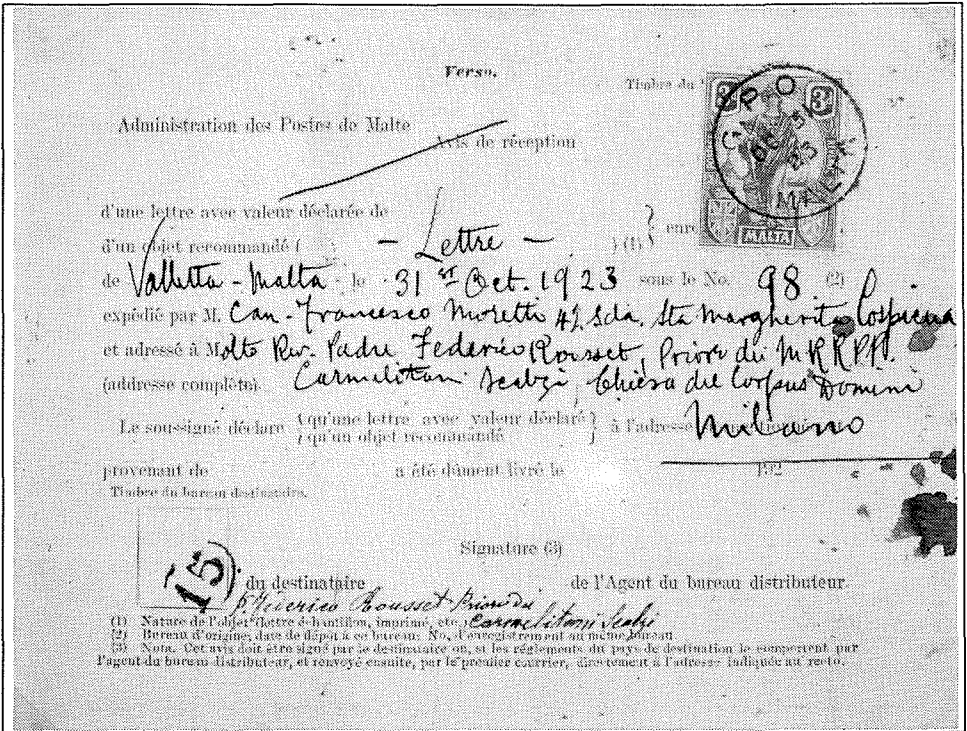 Verso.
Timbre du
3d 3d
G.P.O
OC 31
23
MALTA
MALTA
Administration des Postes de Malte
Avis de réception
d'une lettre avec valeur déclarée de
d'un objet recommandé ( - Lettre - ) (1) } enre
de Valletta - Malta le 31st Oct. 1923 sous le No. 98 (2)
expédié par M. Can. Francesco Moretti 42 Sda. Sta Margherita Cospicua
et adressé à Molto Rev. Padre Federico Rousset, Priore dei M R R P P.
(addresse complète) Carmelitani Scalzi, Chiesa del Corpus Domini
Milano
Le soussigné déclare { qu'une lettre avec valeur déclaré } à l'adresse
{ qu'un objet recommandé }
provenant de a été dûment livré le 192
Timbre du bureau destinandre.
15
Signature (3)
du destinataire de l'Agent du bureau distributeur.
P. Federico Rousset Priore dei
Carmelitani Scalzi
(1) Nature de l'objet (lettre échantillon, imprimé, etc.)
(2) Bureau d'origine; date de dépôt à ce bureau; No. d'enregistrement au même bureau
(3) Nota. Cet avis doit être signé par le destinataire ou, si les règlements du pays de destination le comportent par
l'agent du bureau distributeur, et renvoyé ensuite, par le premier courrier, directement à l'adresse indiquée au recto.